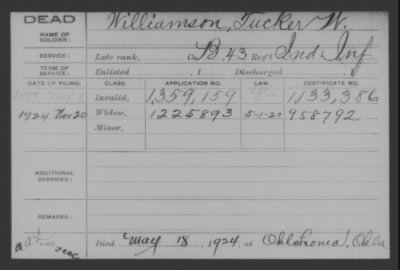 DEAD
Williamson, Tucker W.
NAME OF SOLDIER:
SERVICE: Late rank, Co. B, 43 Reg't Ind Inf
TERM OF SERVICE: Enlisted , 1 Discharged , 1
DATE OF FILING. CLASS. APPLICATION NO. LAW. CERTIFICATE NO.
Invalid, 1,359,159 1,133,386
1924 Nov 20 Widow, 1225893 5-1-20 958792
Minor,
ADDITIONAL SERVICES:
REMARKS:
Died May 18, 1924, at Okla